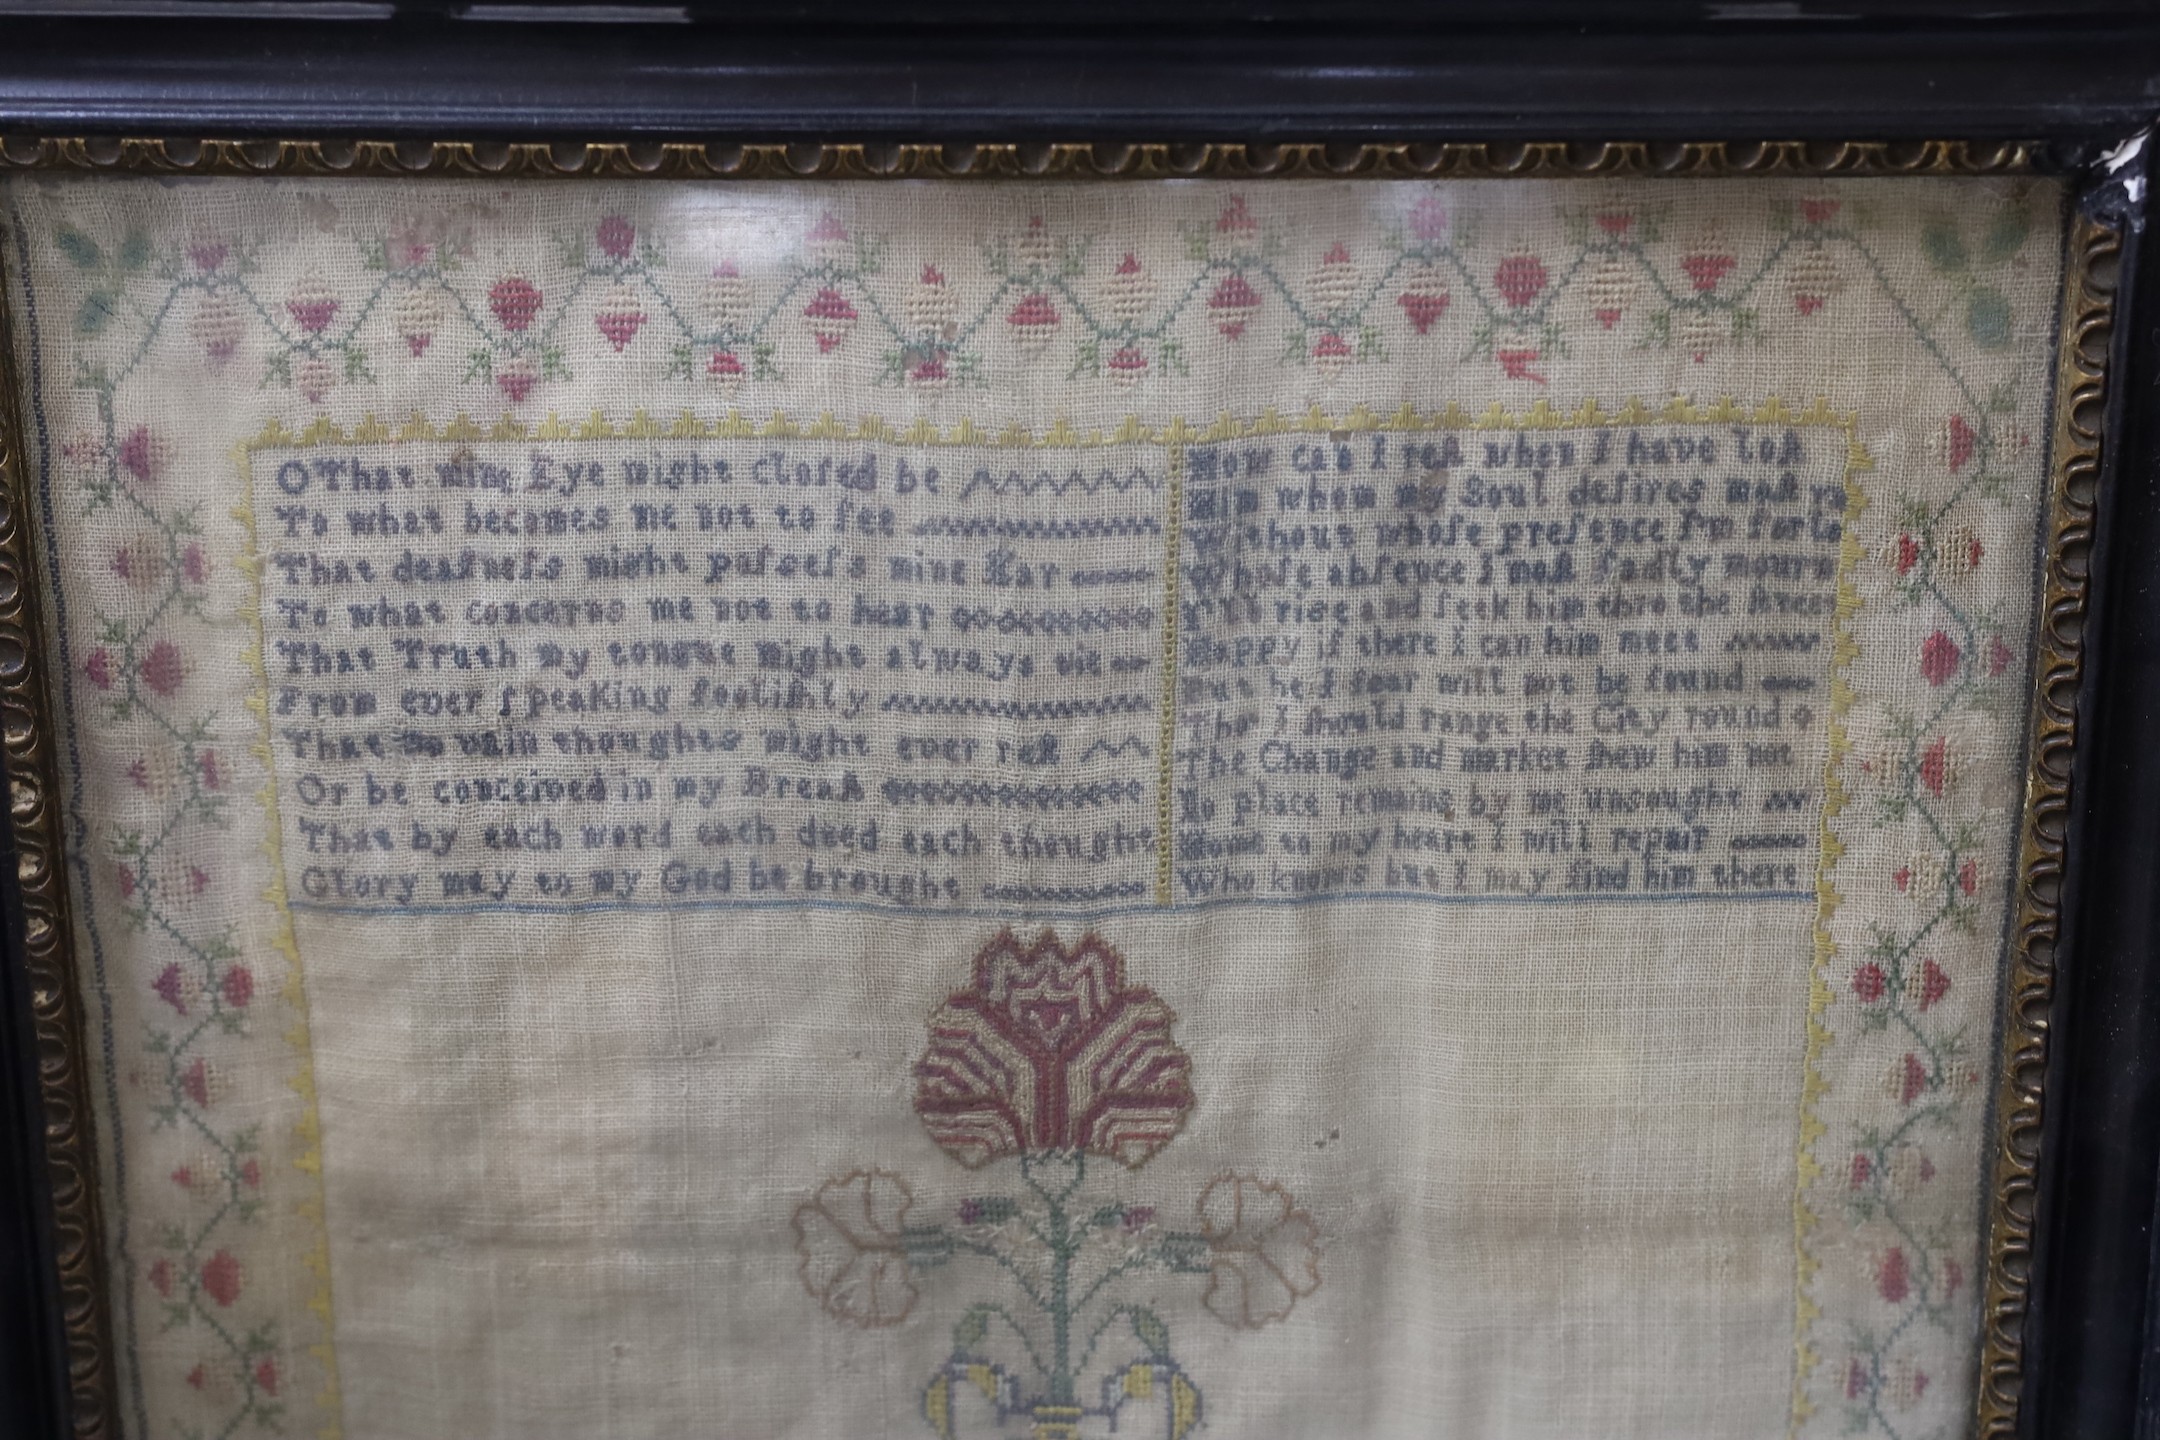 O That mine Eye might closed be
To what becomes me not to see
That deafness might possess mine Ear
To what concerns me not to hear
That Truth my tongue might always tie
From ever speaking foolishly
That no vain thoughts might ever rest
Or be conceived in my Breast
That by each word each deed each thought
Glory may to my God be brought
How can I rest when I have lost
Him whom my Soul desires most
Without whose presence I'm forlo
Whose absence I most sadly mourn
I'll rise and seek him thro the street
Happy if there I can him meet
But he I fear will not be found
Tho I should range the City round
The Change and market shew him not
No place remains by me unsought
Home to my heart I will repair
Who knows but I may find him there